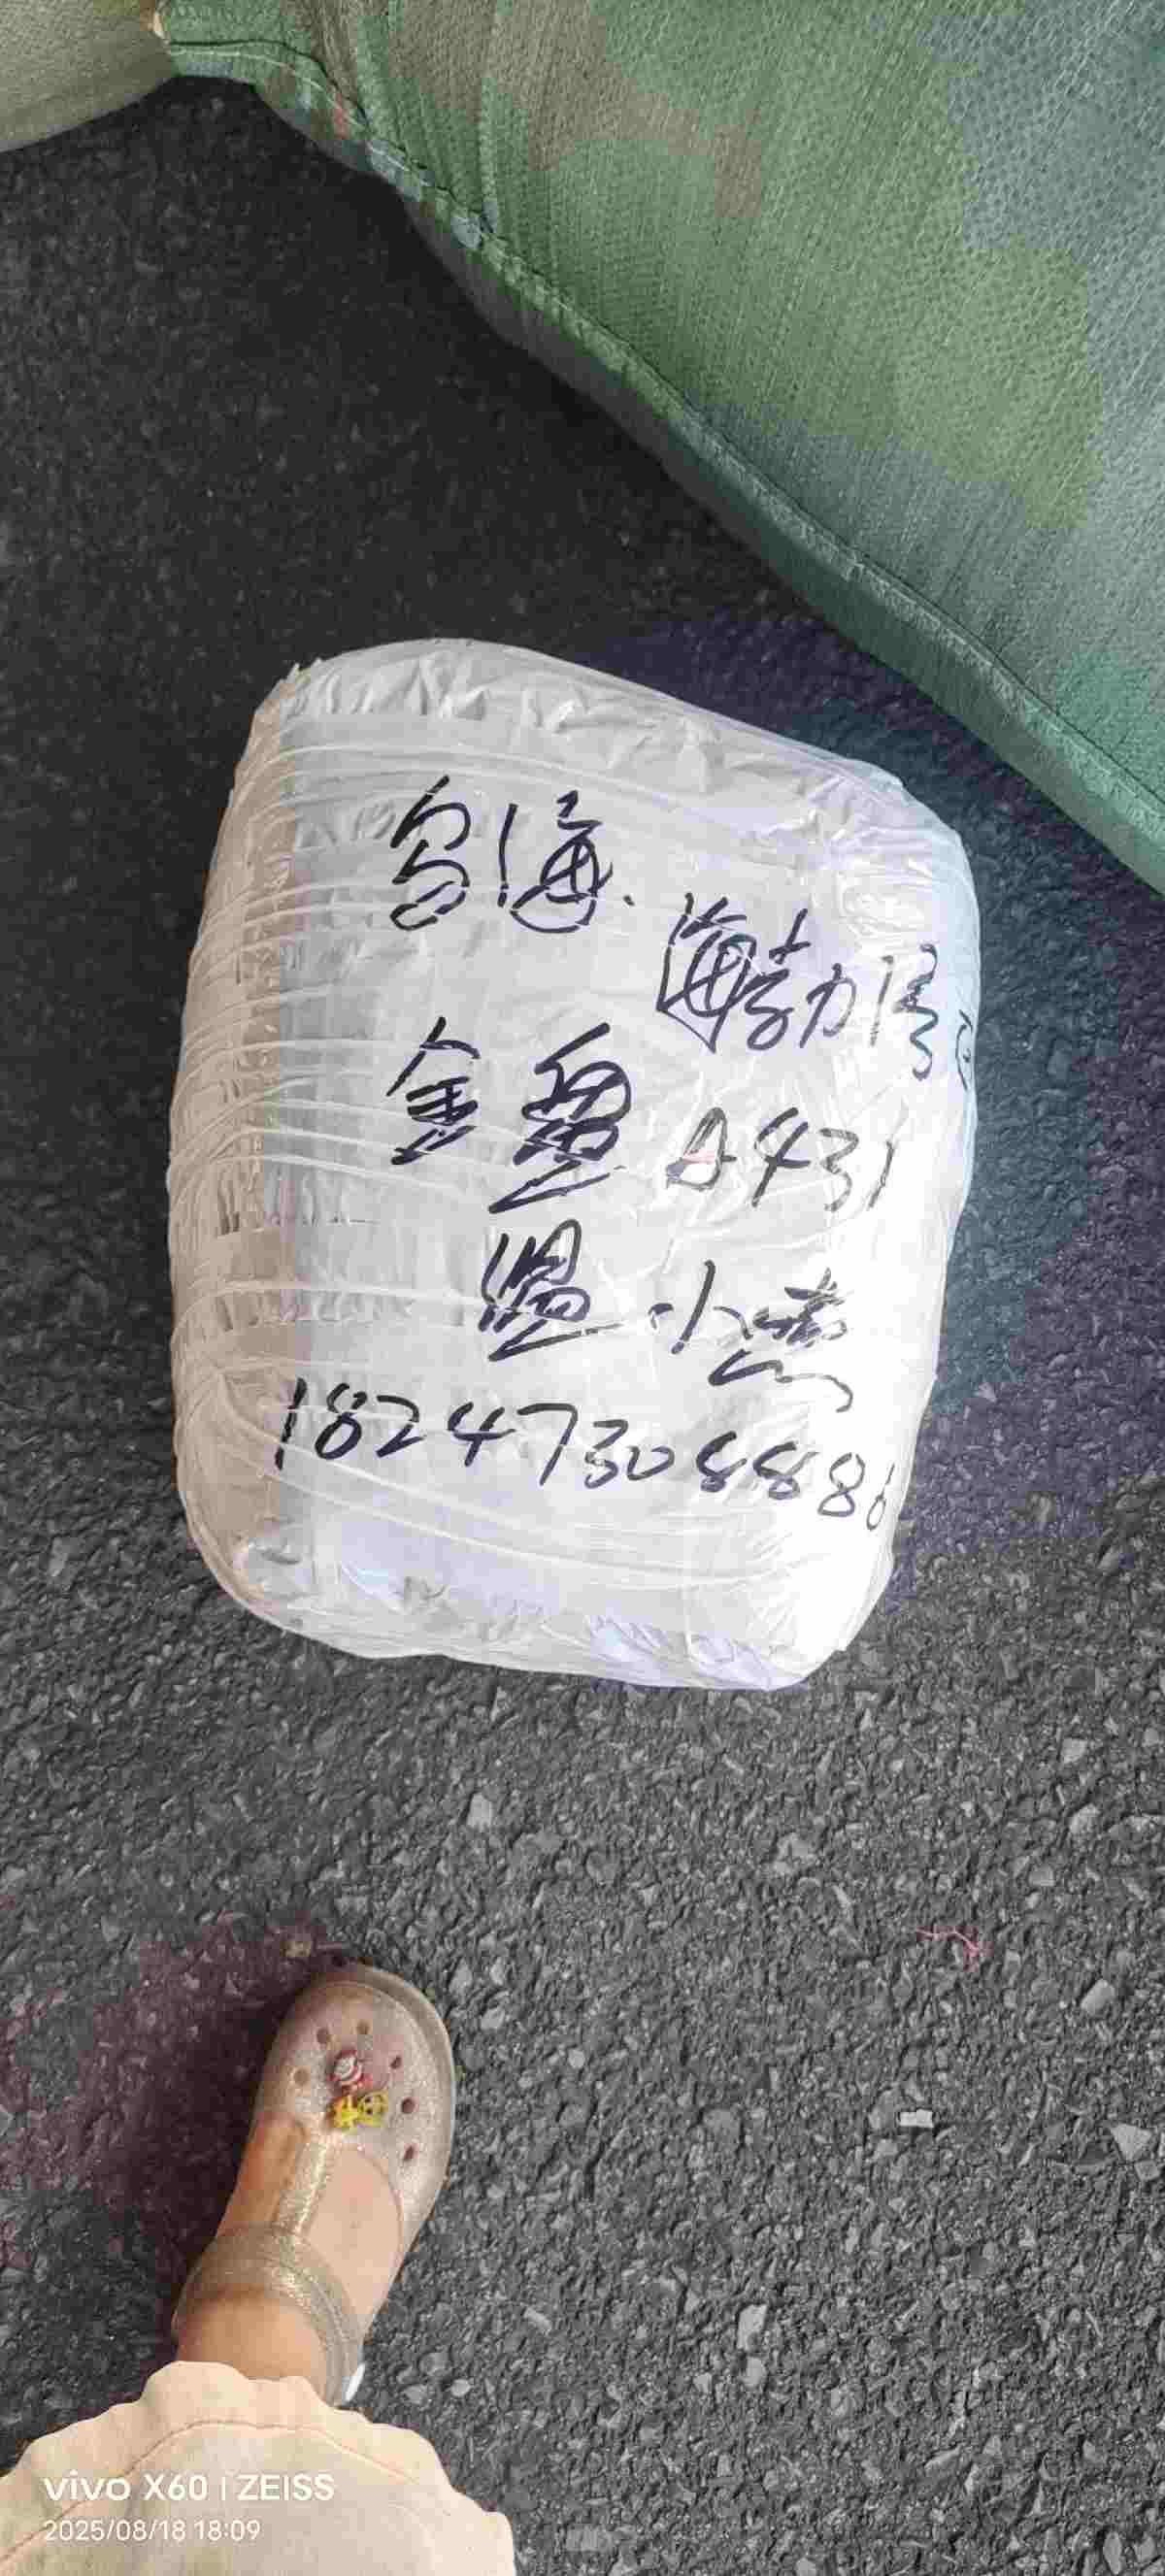 乌海
海勃湾区
金盈 A431
盟 小燕
18247308886
vivo X60 | ZEISS
2025/08/18 18:09